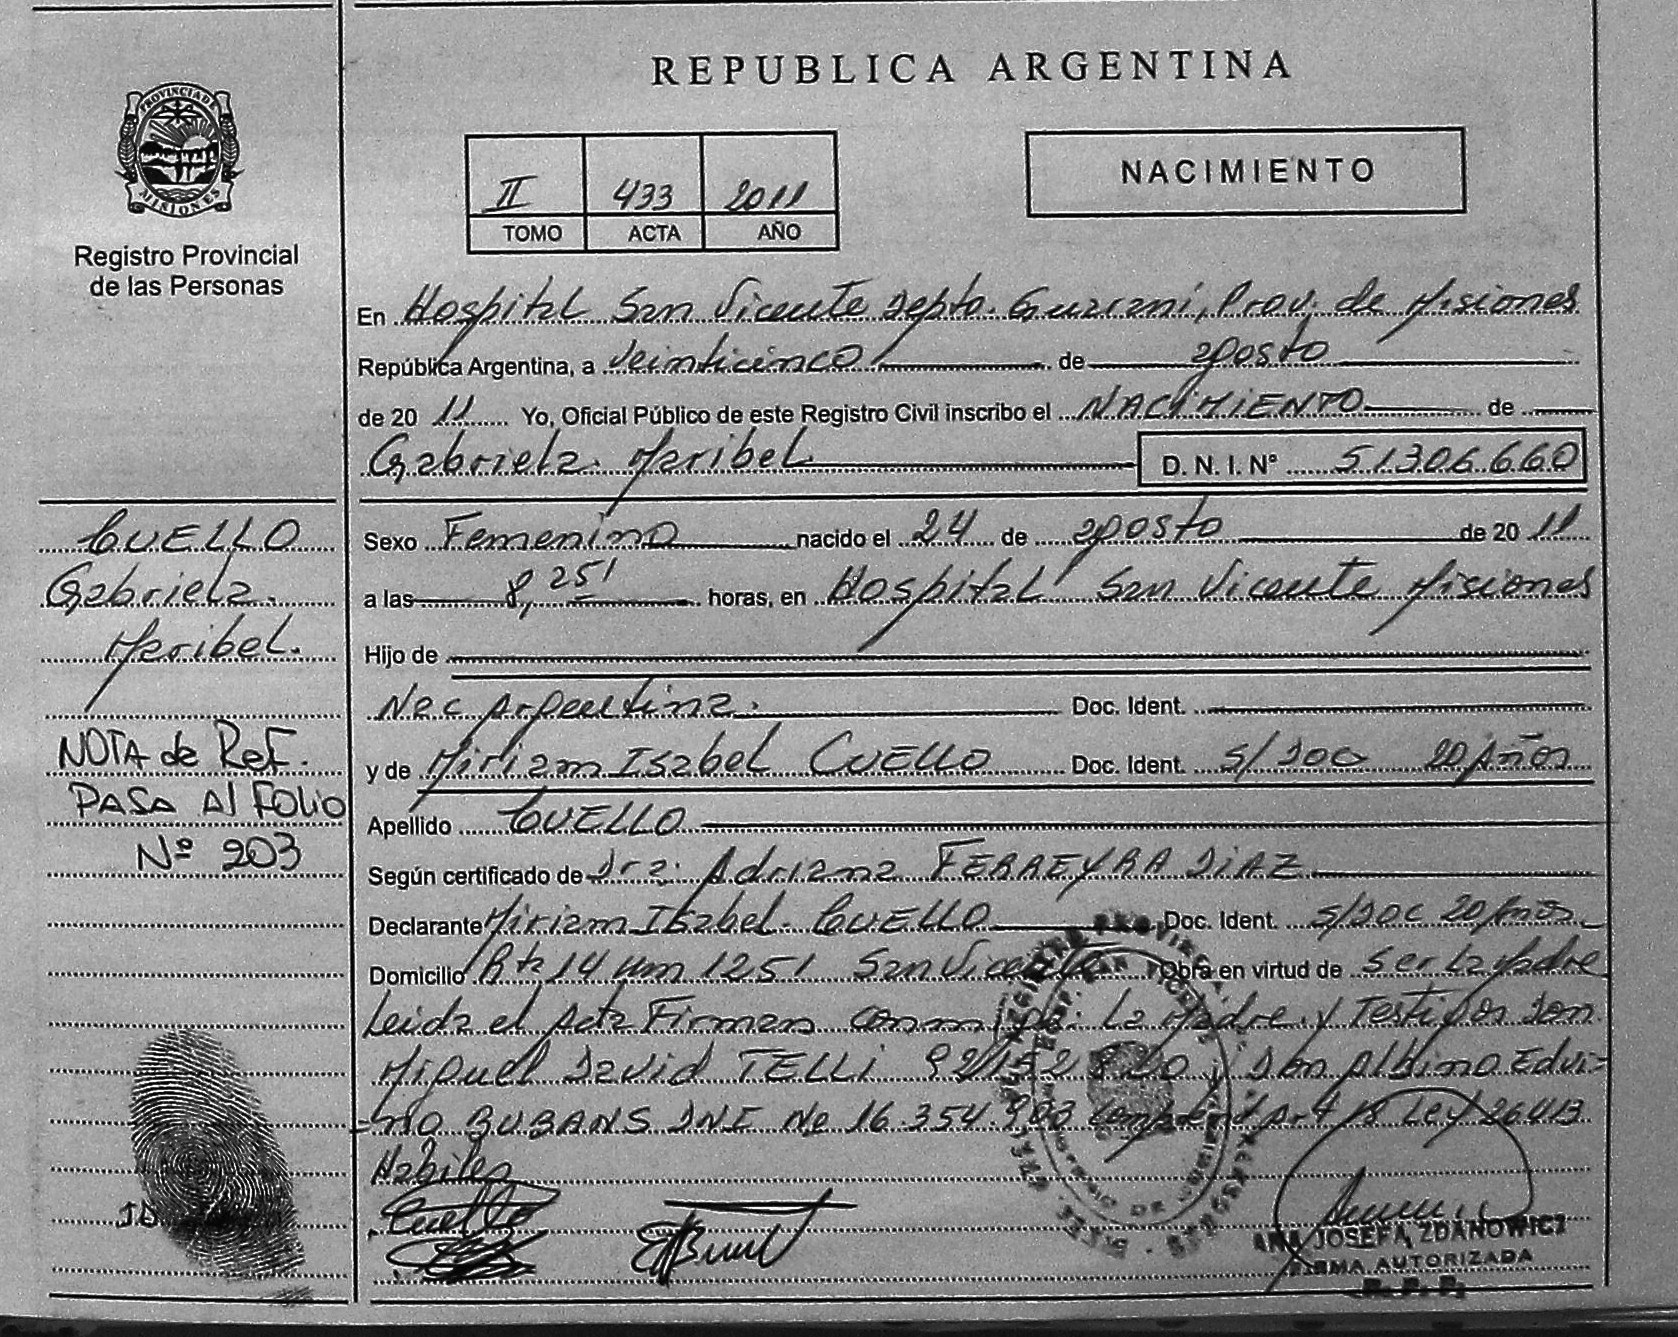 REPUBLICA ARGENTINA
PROVINCIA DE
MISIONES
Registro Provincial
de las Personas
II 433 2011
TOMO ACTA AÑO
NACIMIENTO
En Hospital San Vicente Depto. Guarani, Prov. de Misiones
República Argentina, a veinticinco de agosto
de 20 11 Yo, Oficial Público de este Registro Civil inscribo el NACIMIENTO de
Gabriela Maribel D. N. I. Nº 51306.660
CUELLO
Gabriela
Maribel.
NOTA de Ref.
PASA Al Folio
Nº 203
Sexo Femenino nacido el 24 de agosto de 20 11
a las 8,25' horas, en Hospital San Vicente Misiones
Hijo de
Nac Argentina. Doc. Ident.
y de Miriam Isabel CUELLO Doc. Ident. S/DOC 20 Años
Apellido CUELLO
Según certificado de Dra. Adriana FERREYRA DIAZ
Declarante Miriam Isabel CUELLO Doc. Ident. S/DOC 20 Años
Domicilio Rta 14 Km 1251 San Vicente Obra en virtud de Ser La Madre
Leida el Acta Firman conmigo: La Madre y Testigos Don
Miguel David TELLI y Don Albino Edvi-
no BUBANS DNI No 16.354. Art Ley 26413
Habiles
Cuello
ANA JOSEFA ZDANOWICZ
FIRMA AUTORIZADA
R. P. P.